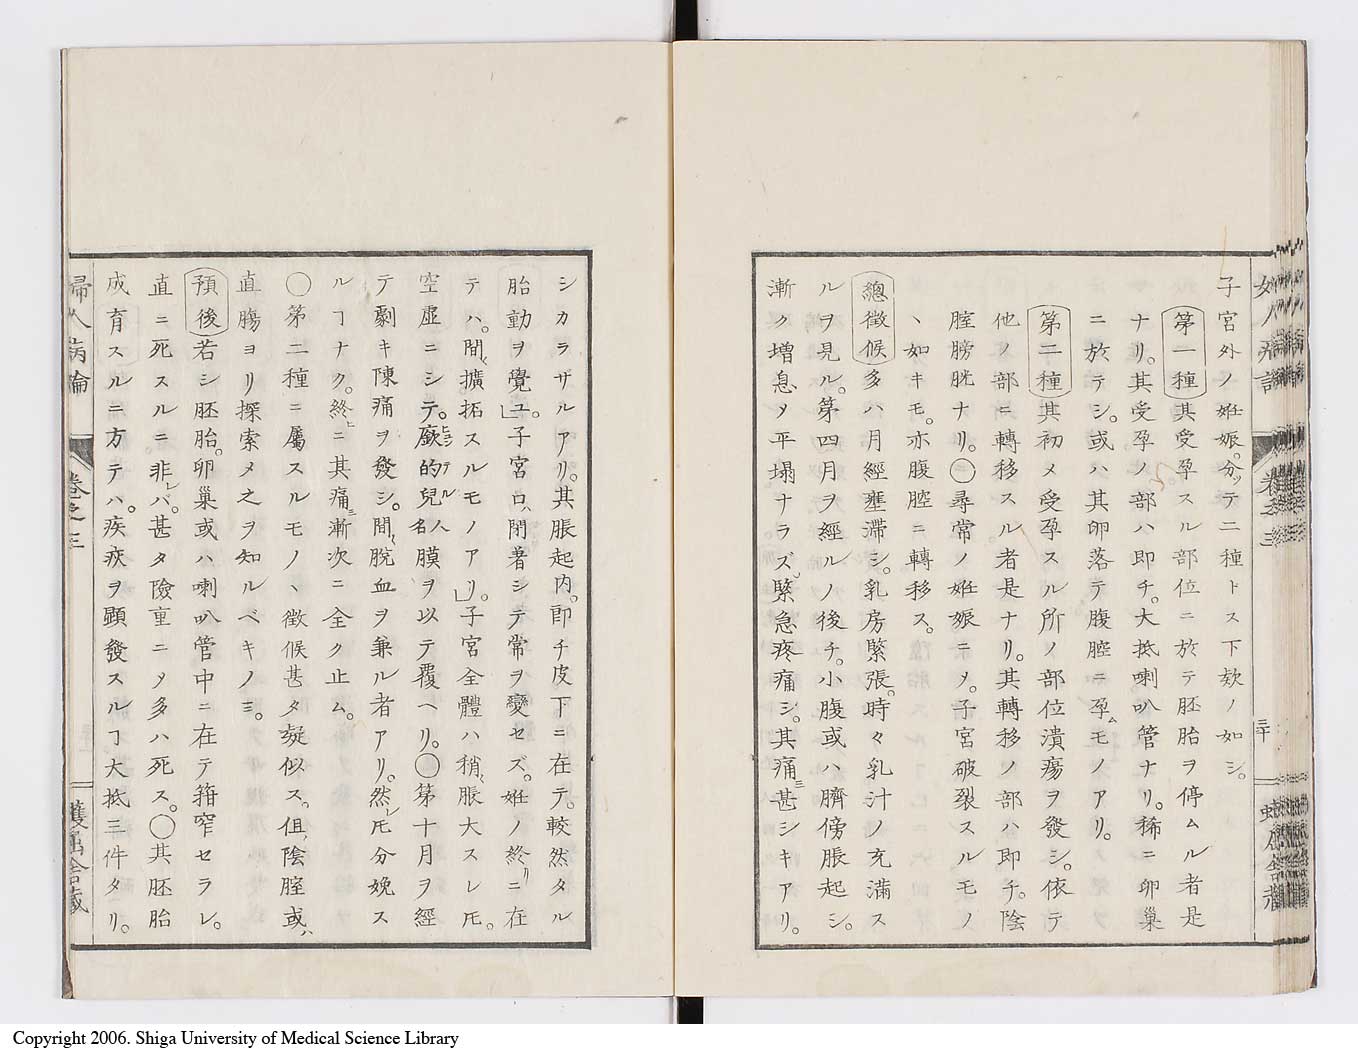 子宮外ノ姙娠。分ッテ二種トス下欵ノ如シ。
第一種其受孕スル部位ニ於テ胚胎ヲ停ムル者是
ナリ。其受孕ノ部ハ即チ。大抵喇叭管ナリ。稀ニ卵巣
ニ於テシ。或ハ其卵落テ腹腔ニ孕ムモノアリ。
第二種其初メ受孕スル所ノ部位潰瘍ヲ發シ。依テ
他ノ部ニ轉移スル者是ナリ。其轉移ノ部ハ即チ。陰
腟膀胱ナリ。〇尋常ノ姙娠ニメ。子宮破裂スルモノ
ヽ如キモ。亦腹腔ニ轉移ス。
總徴候多ハ月經壅滞シ。乳房緊張。時々乳汁ノ充滿ス
ルヲ見ル。第四月ヲ經ルノ後チ。小腹或ハ臍傍脹起シ。
漸ク増息メ平塌ナラズ。緊急疼痛シ。其痛甚シキアリ。
三十
シカラザルアリ。其脹起内。即チ皮下ニ在テ。較然タル
胎動ヲ覺ユ。」子宮口、閉著シテ常ヲ變セズ。姙ノ終リニ在
テハ。間〻擴拓スルモノアリ」。子宮全體ハ稍〻脹大スレ𪜈。
空虚ニシテ。厥的兒人名膜ヲ以テ覆ヘリ。〇第十月ヲ經
ヒヨツテル
テ劇キ陳痛ヲ發シ。間〻脱血ヲ兼ル者アリ。然レ𪜈分娩ス
ルヿナク。終ヒニ其痛ミ漸次ニ全ク止ム。
〇第二種ニ屬スルモノヽ徴候甚タ疑似ス。但〻陰腟或ハ
直腸ヨリ探索メ之ヲ知ルベキノミ。
預後若シ胚胎。卵巣或ハ喇叭管中ニ在テ箝窄セラレ。
直ニ死スルニ非レバ。甚タ險重ニメ多ハ死ス。〇其胚胎
成育スルニ方テハ。疾疚ヲ顕發スルヿ大抵三件タリ。
婦人病論
卷之三
Copyright 2006. Shiga University of Medical Science Library